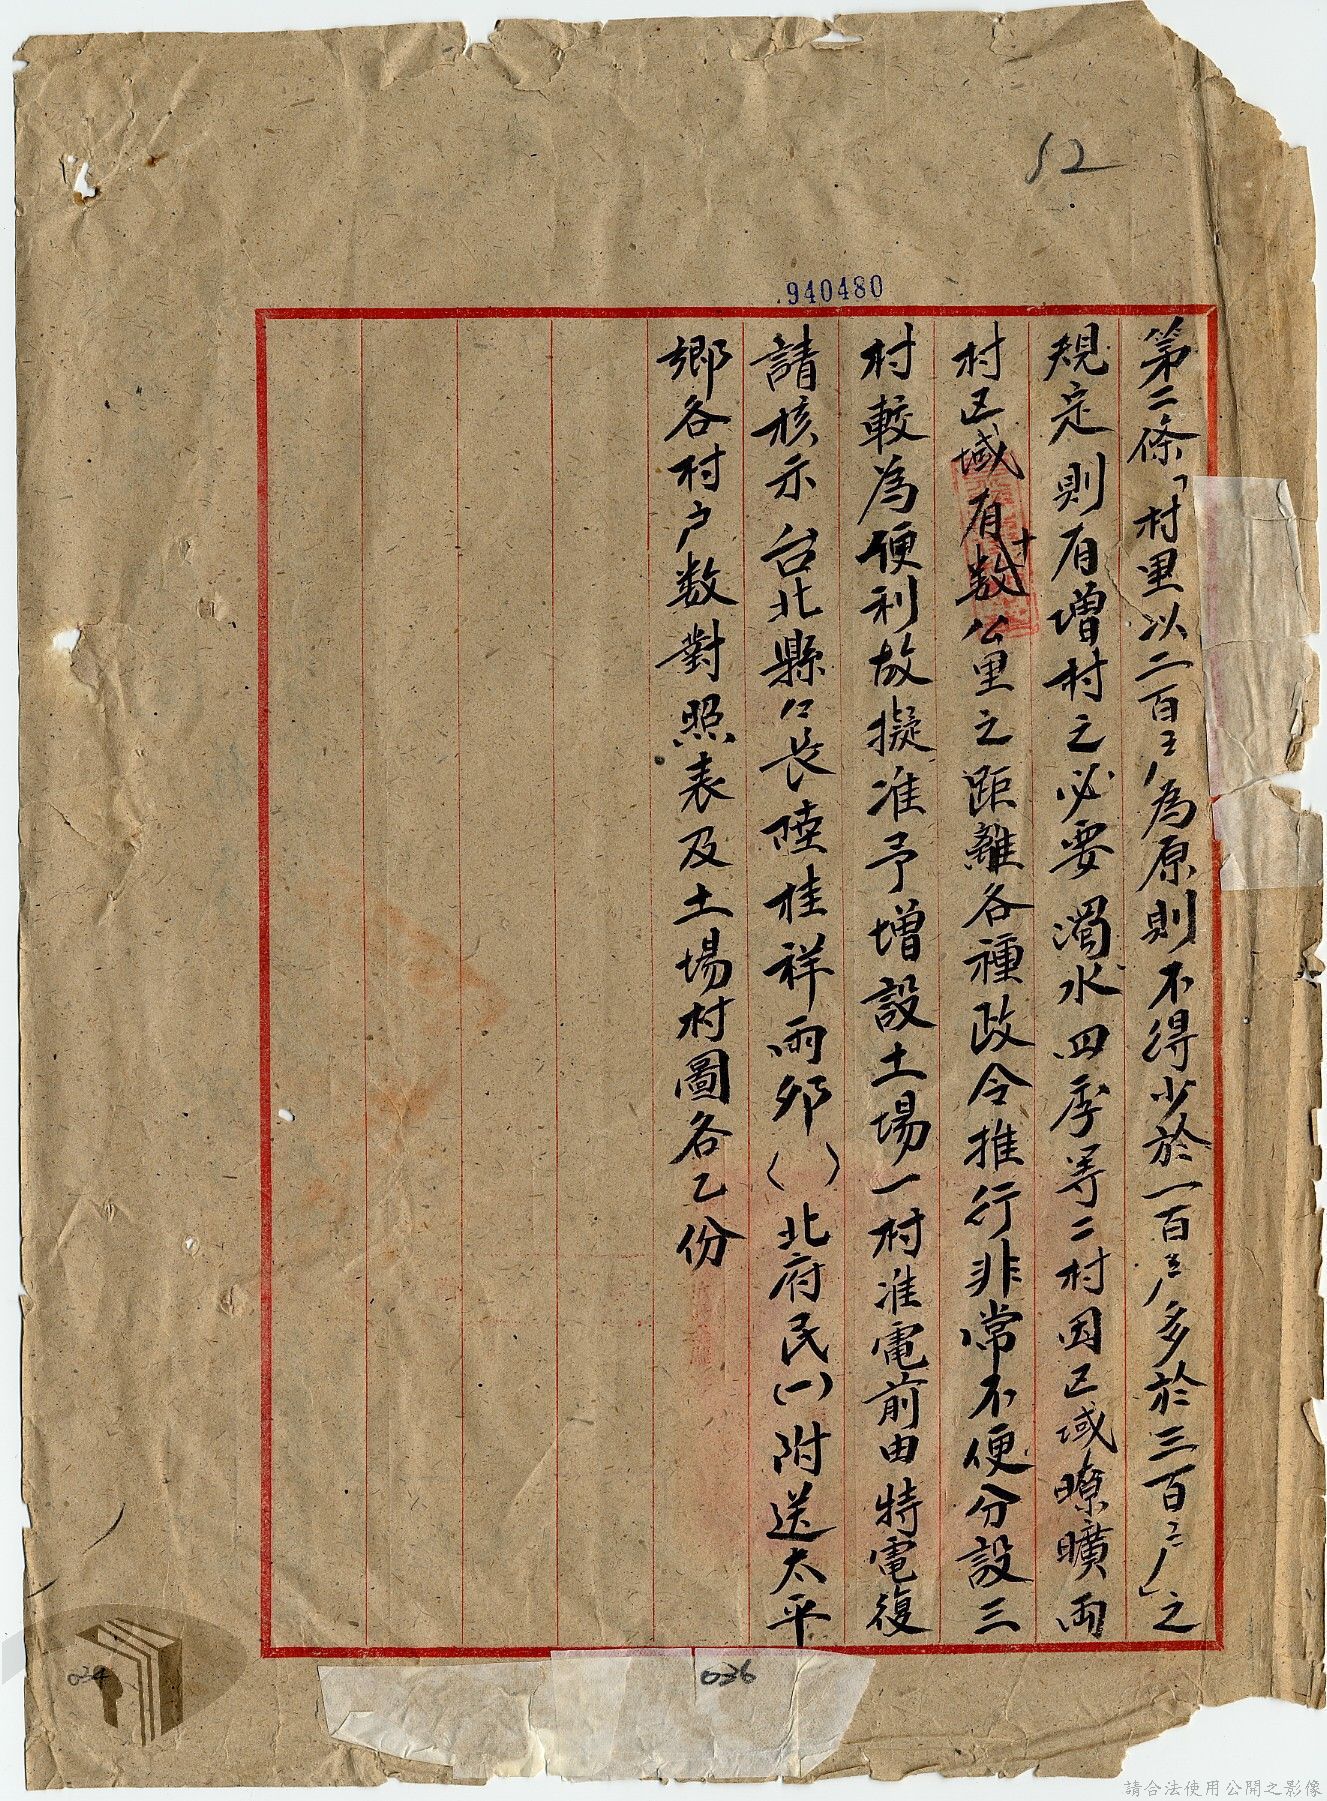 52
940480
第二條「村里以二百戶為原則不得少於一百戶多於三百戶」之
規定則有增村之必要濁水四季等二村因区域瞭曠両
村区域有数十公里之距離各種政令推行非常不便分設三
村較為便利故擬准予增設土場一村准電前由特電復
請核示台北縣々長陸桂祥雨夘（ ）北府民(一)附送太平
鄉各村户数對照表及土場村圖各乙份
034
036
請合法使用公開之影像